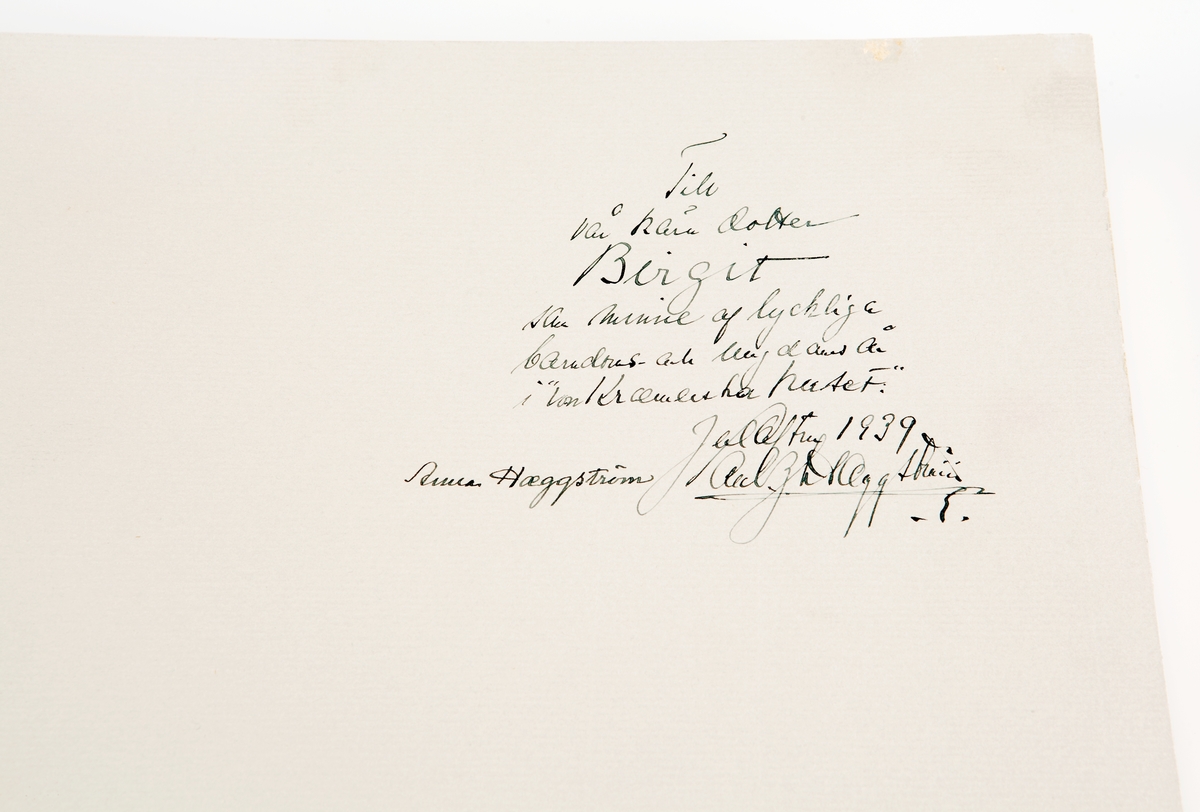 Till
vår kära dotter
Birgit
som minne af lyckliga
barndoms- och ungdoms år
i "von Kræmerska huset."
Julafton 1939
Anna Hæggström Hæggström